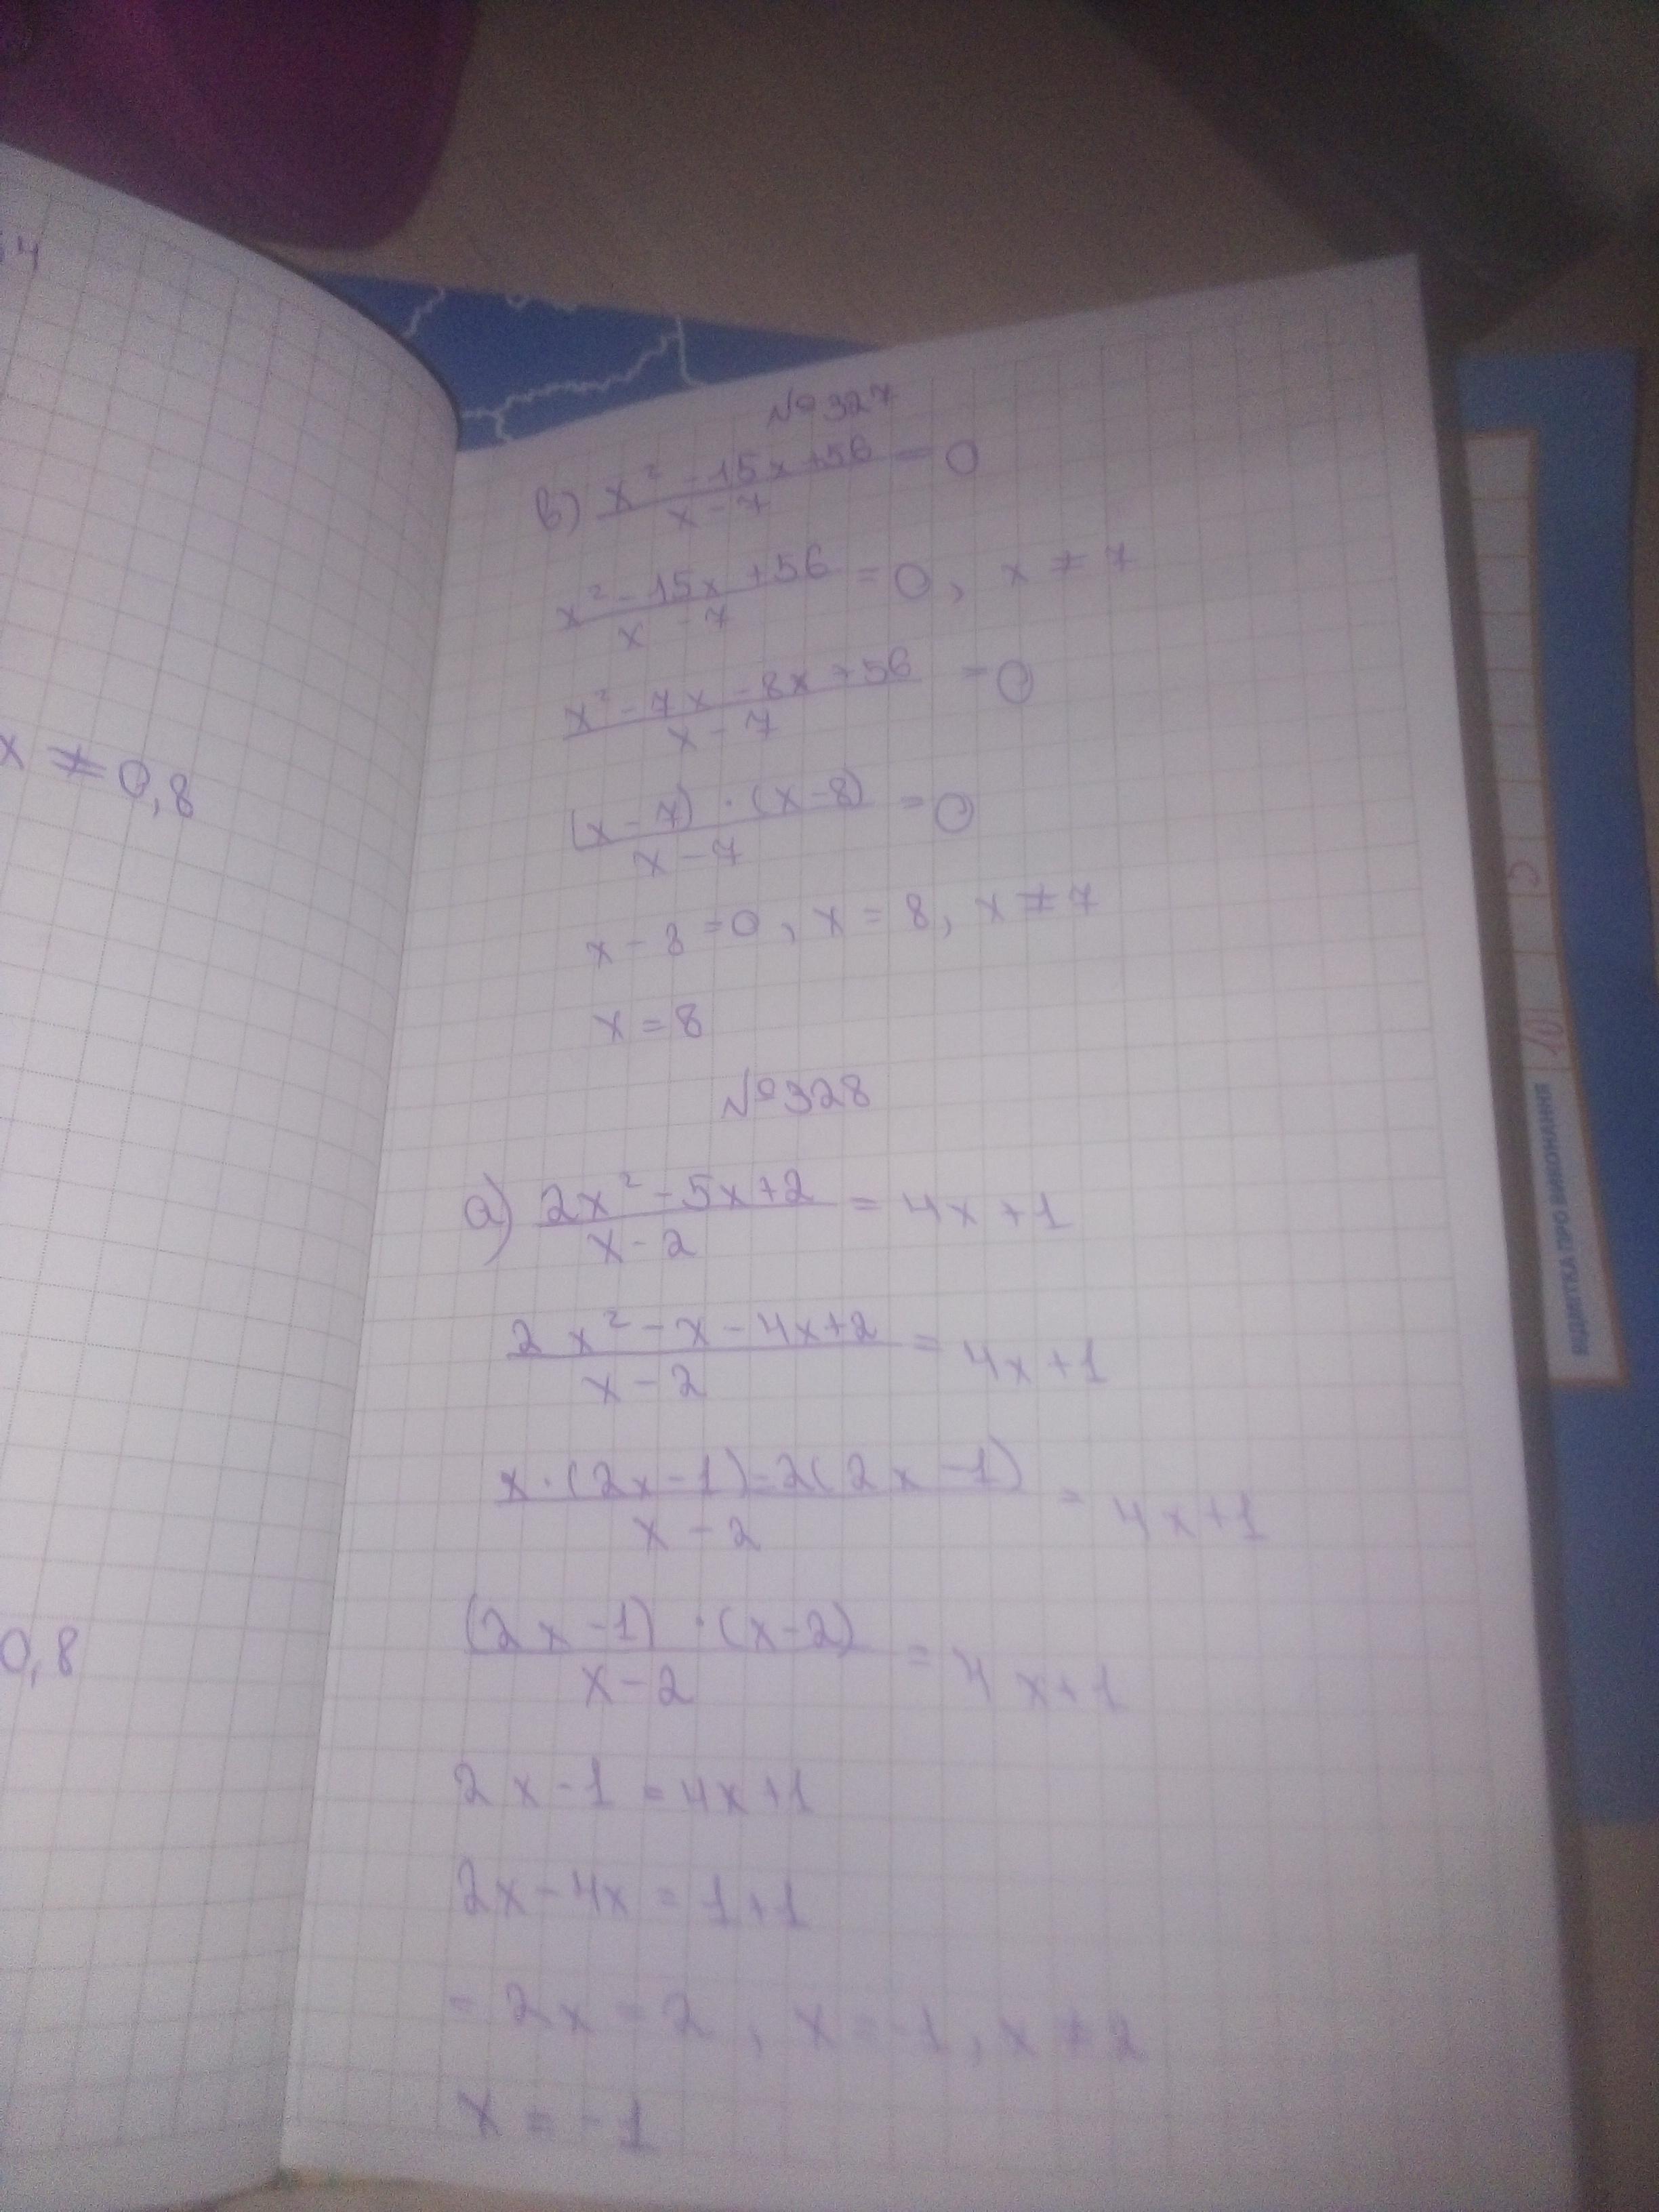 54
x ≠ 0,8
0,8
№327
в) (x² - 15x + 56)/(x - 7) = 0
(x² - 15x + 56)/(x - 7) = 0, x ≠ 7
(x² - 7x - 8x + 56)/(x - 7) = 0
((x - 7) · (x - 8))/(x - 7) = 0
x - 8 = 0, x = 8, x ≠ 7
x = 8
№328
а) (2x² - 5x + 2)/(x - 2) = 4x + 1
(2x² - x - 4x + 2)/(x - 2) = 4x + 1
(x · (2x - 1) - 2(2x - 1))/(x - 2) = 4x + 1
((2x - 1) · (x - 2))/(x - 2) = 4x + 1
2x - 1 = 4x + 1
2x - 4x = 1 + 1
- 2x = 2, x = -1, x ≠ 2
x = -1
ВІДМІТКА ПРО ВИКОНАННЯ
10